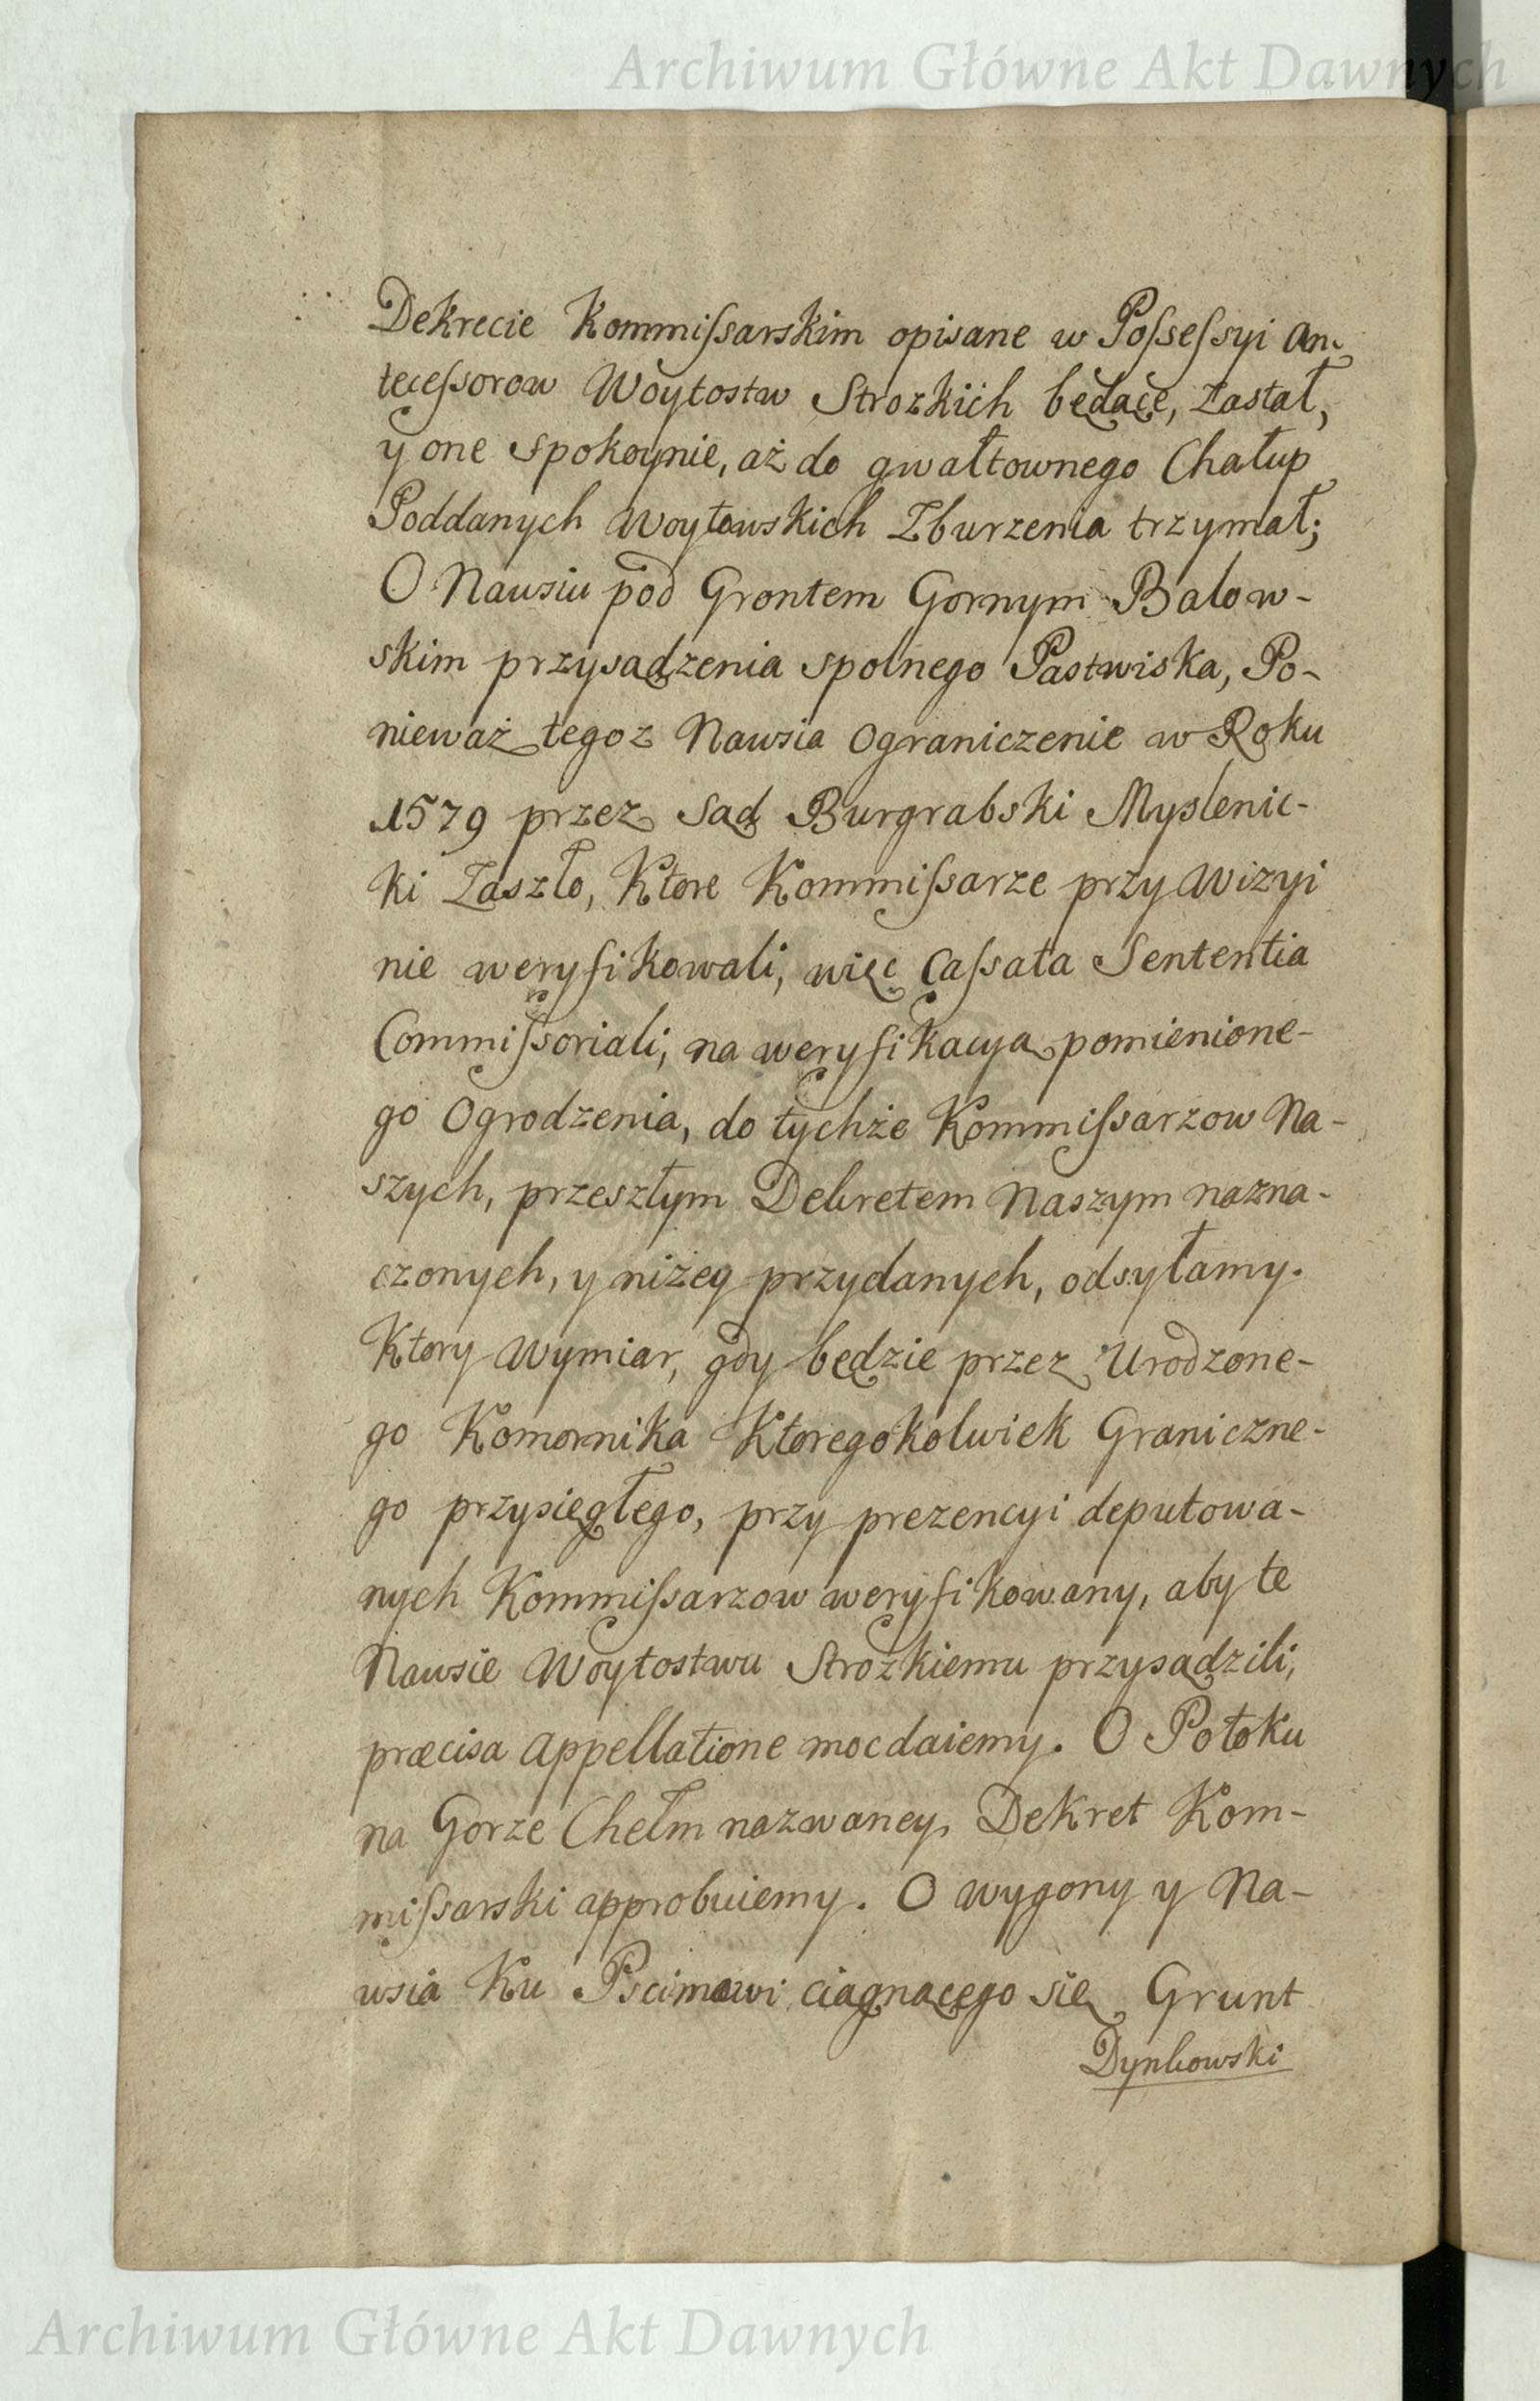 Archiwum Główne Akt Dawnych
Dekrecie Kommiſsarskim opisane w Poſseſsyi An-
teceſsorow Woytostw Strozkich będące, zastał,
y one spokoynie, aż do gwałtownego Chałup
Poddanych Woytowskich Zburzenia trzymał;
O Nawsiu pod Grontem Gornym Balow-
skim przysądzenia spolnego Pastwiska, Po-
nieważ tegoz Nawsia Ograniczenie w Roku
1579 przez Sąd Burgrabski Myslenic-
ki Zaszło, Ktore Kommiſsarze przy Wizyi
nie weryfikowali, więc Caſsata Sententia
Commiſsoriali, na weryfikacyą pomienione-
go Ogrodzenia, do tychże Kommiſsarzow Na-
szych, przeszłym Dekretem Naszym nazna-
czonych, y niżey przydanych, odsyłamy.
Ktory Wymiar, gdy będzie przez Urodzone-
go Komornika Ktoregokolwiek Graniczne-
go przysięgłego, przy prezencyi deputowa-
nych Kommiſsarzow weryfikowany, aby te
Nawsie Woytostwu Strozkiemu przysądzili,
præcisa Appellatione moc daiemy. O Potoku
na Gorze Chełm nazwaney, Dekret Kom-
miſsarski approbuiemy. O wygony y Na-
wsia Ku Pscimowi ciągnącego się Grunt
Dynkowski
Archiwum Główne Akt Dawnych